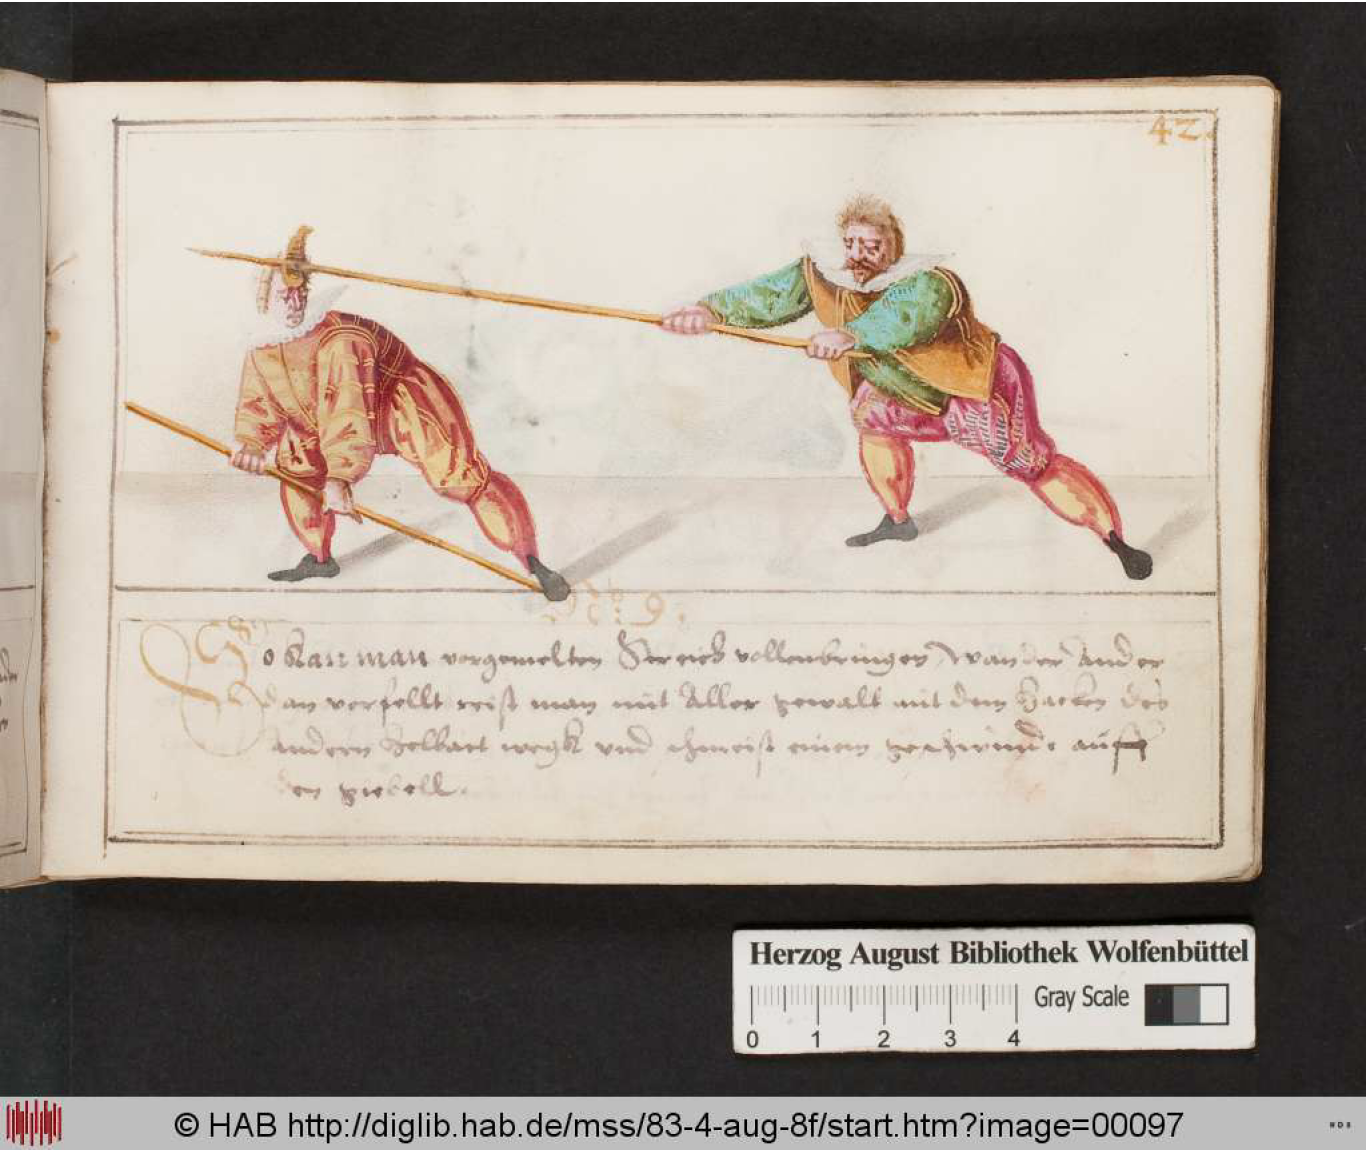 42.
So kan man vorgemelten Streich vollenbringen wan der Ander
dan verfellt reist man mit Aller gewalt mit dem Hacken des
andern helbart wegk und schmeist einem geschwinde auff
den giebell.
Herzog August Bibliothek Wolfenbüttel
0 1 2 3 4 Gray Scale
© HAB http://diglib.hab.de/mss/83-4-aug-8f/start.htm?image=00097